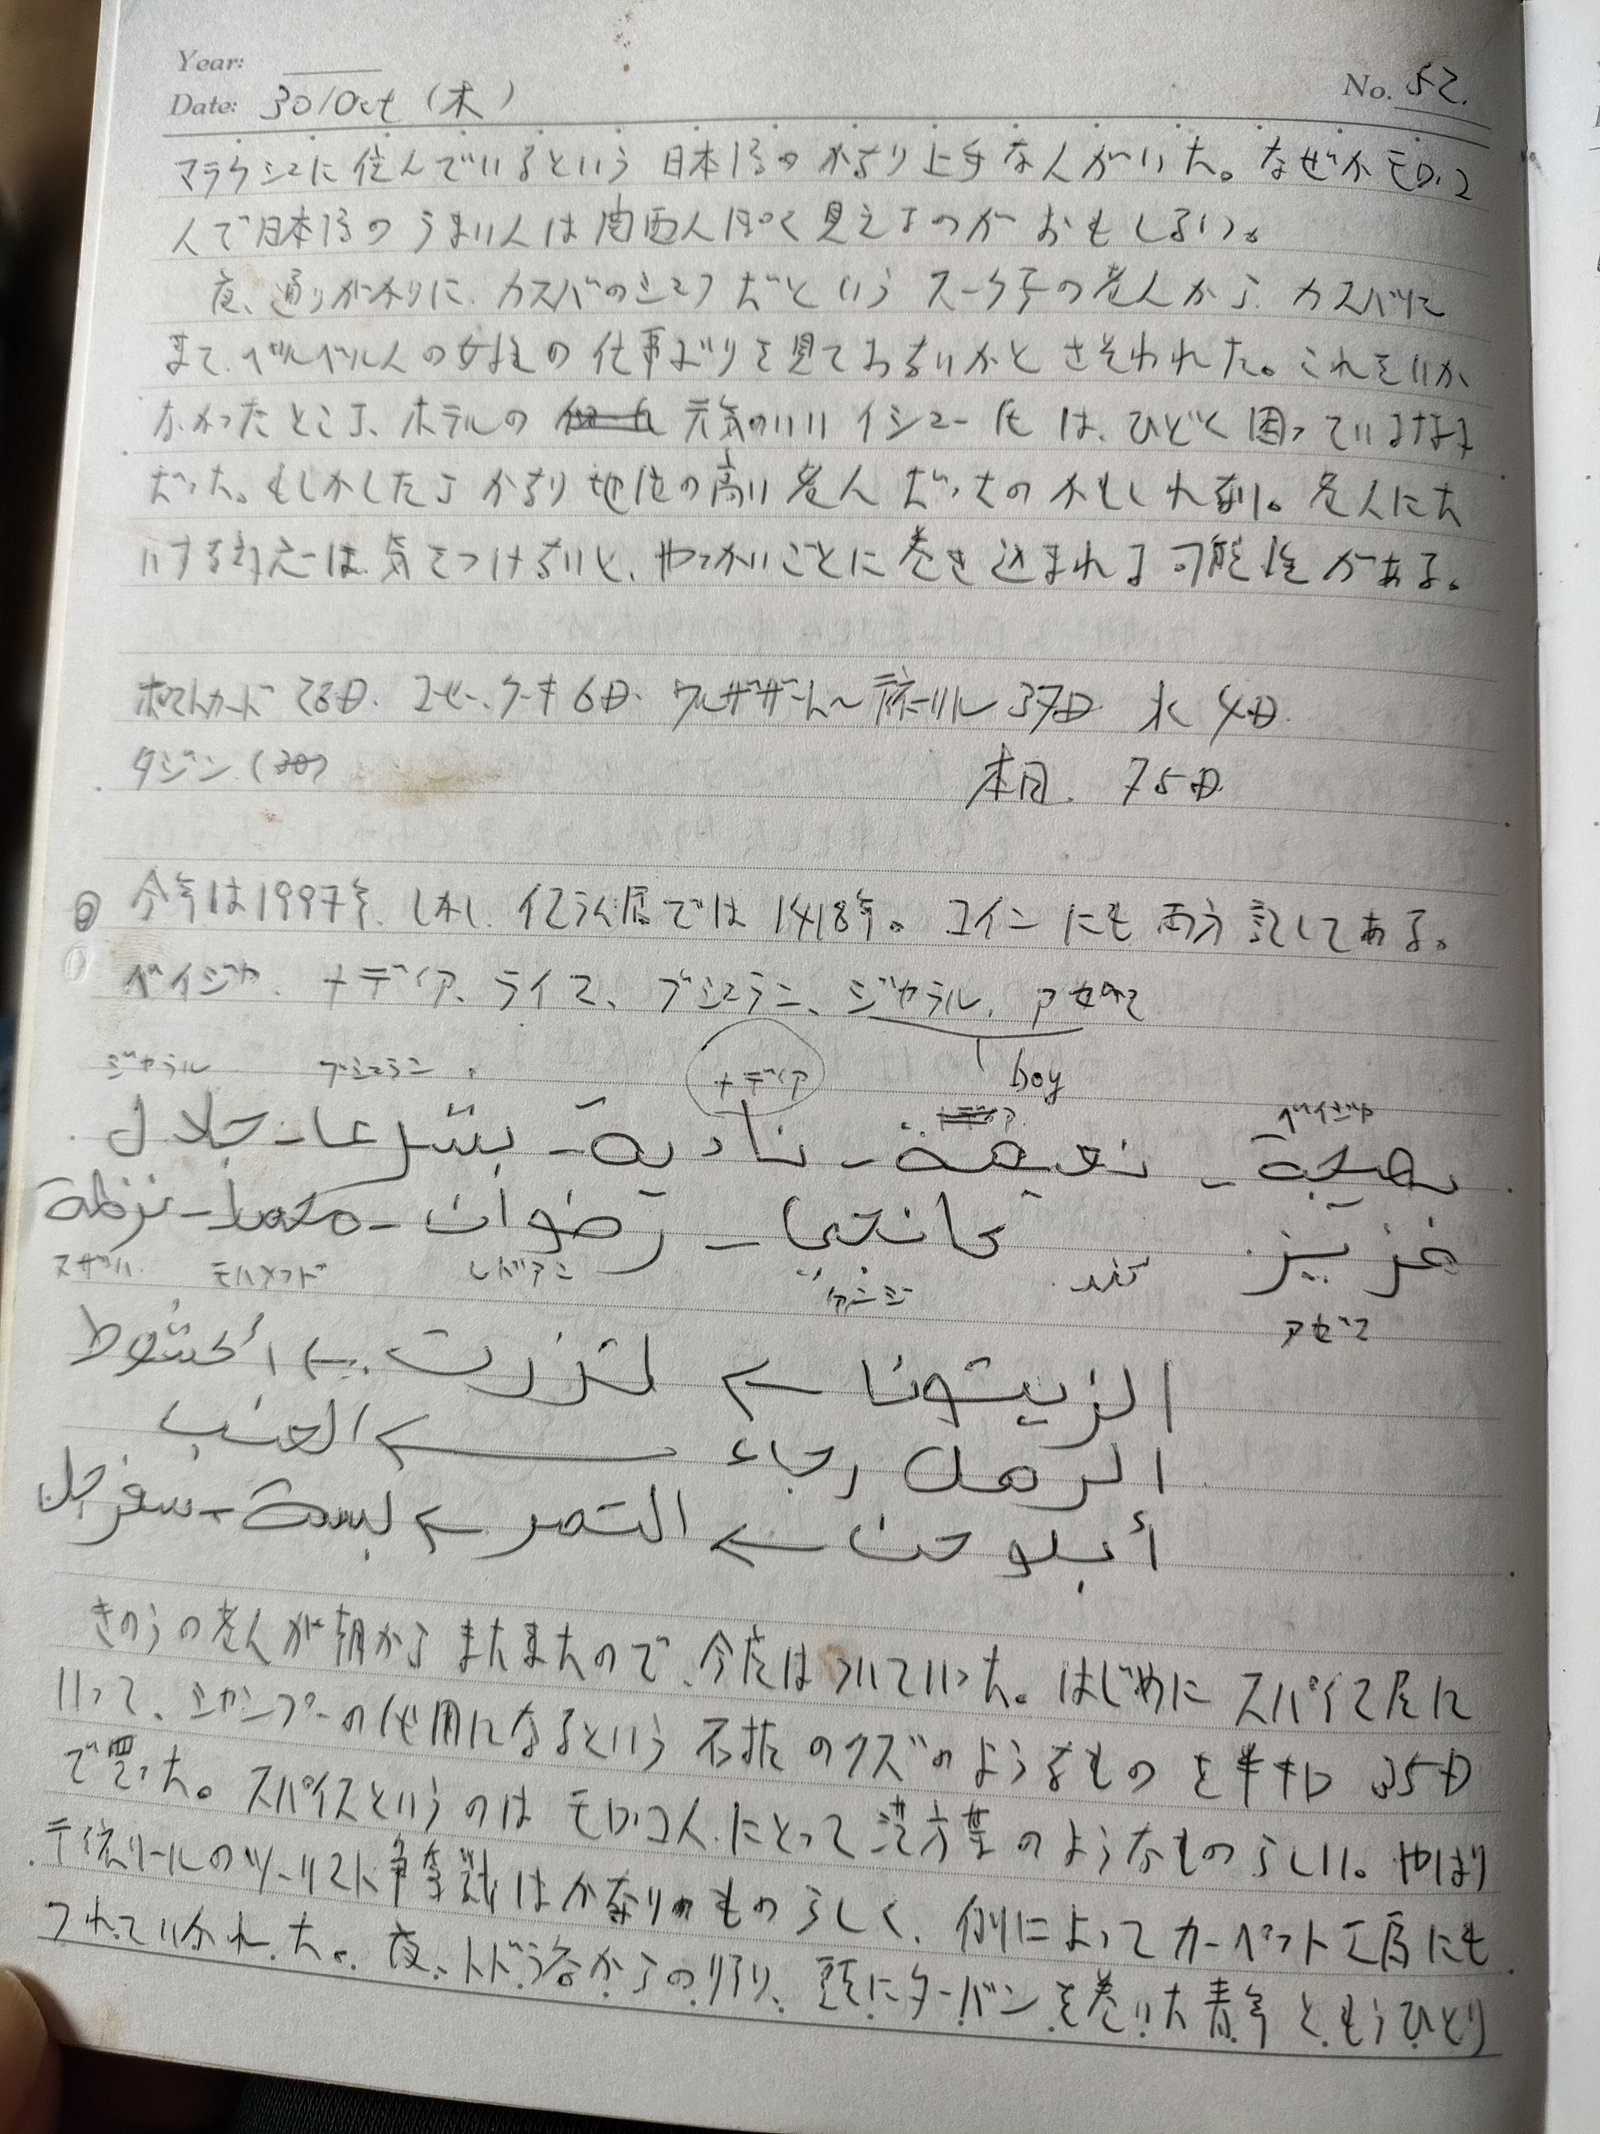 Year:
Date: 30/Oct (木)
No. 52.
マラケシュに住んでいるという日本語のかなり上手な人がいた。なぜかモロッコ
人で日本語のうまい人は関西人ぽく見えるのがおもしろい。
夜、通りがかりに、カスバのシェフだというスーク帝の老人から、カスバに
きて、ベルベル人の女性の仕事ぶりを見ておないかとさそわれた。これをいか
なかったところ、ホテルの 元気のいい イシュー氏は、ひどく困っている
だった。もしかしたらかなり地位の高い老人だったのかもしれない。老人にた
いする は気をつけないと、やっかいごとに巻き込まれる可能性がある。
ポストカード 28D. コーヒー、ケーキ 6D. ワルザザート〜ティネリール 37D. 水 4D.
タジン (30)
本日. 75D.
◎ 今年は1997年、しかし、イスラム暦では1418年。コインにも両方記してある。
ベイジャ、ナディア、ライマ、ブシュラン、ジャラル、アゼズ
boy
ジャラル ブシュラン ナディア
ベイジャ
بهيجة - نعيمة - نادية - بشرعا - جلال
عزيز رضوان - محمد - نزهة
モハメッド レドアン アゼズ
الزيتونا ←
الرمل رجاء ← العنب
← التمر ← بسمة - سفرجل
きのうの老人が朝からまたきたので、今度はついていった。はじめにスパイス屋に
いって、シャンプーの代用になるという石抜のクズのようなものを半キロ 35D
で買った。スパイスというのはモロッコ人にとって漢方薬のようなものらしい。やはり
ティネリールのツーリスト争奪戦はかなりのものらしく、例によってカーペット工房にも
つれていかれた。夜、トドラ谷からの帰り、頭にターバンを巻いた青年ともうひとり